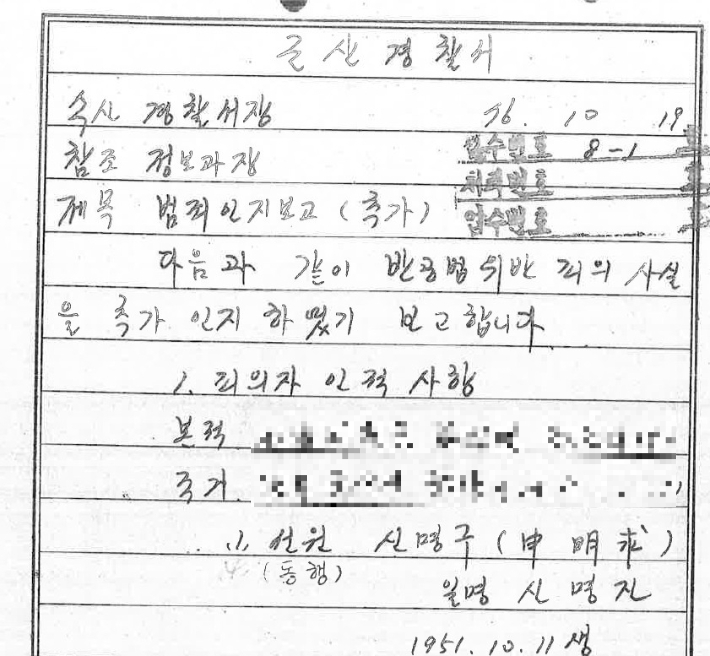 금산경찰서
수신 경찰서장 76. 10 19
참조 정보과장 압수번호 8-1 호
제목 범죄인지보고(추가)
압수번호 호
다음과 같이 반공법위반 피의사실
을 추가 인지하였기 보고합니다
1. 피의자 인적사항
본적
주거
선원 신명구(申明求)
(동행)
일명 신명진
1951. 10. 11생